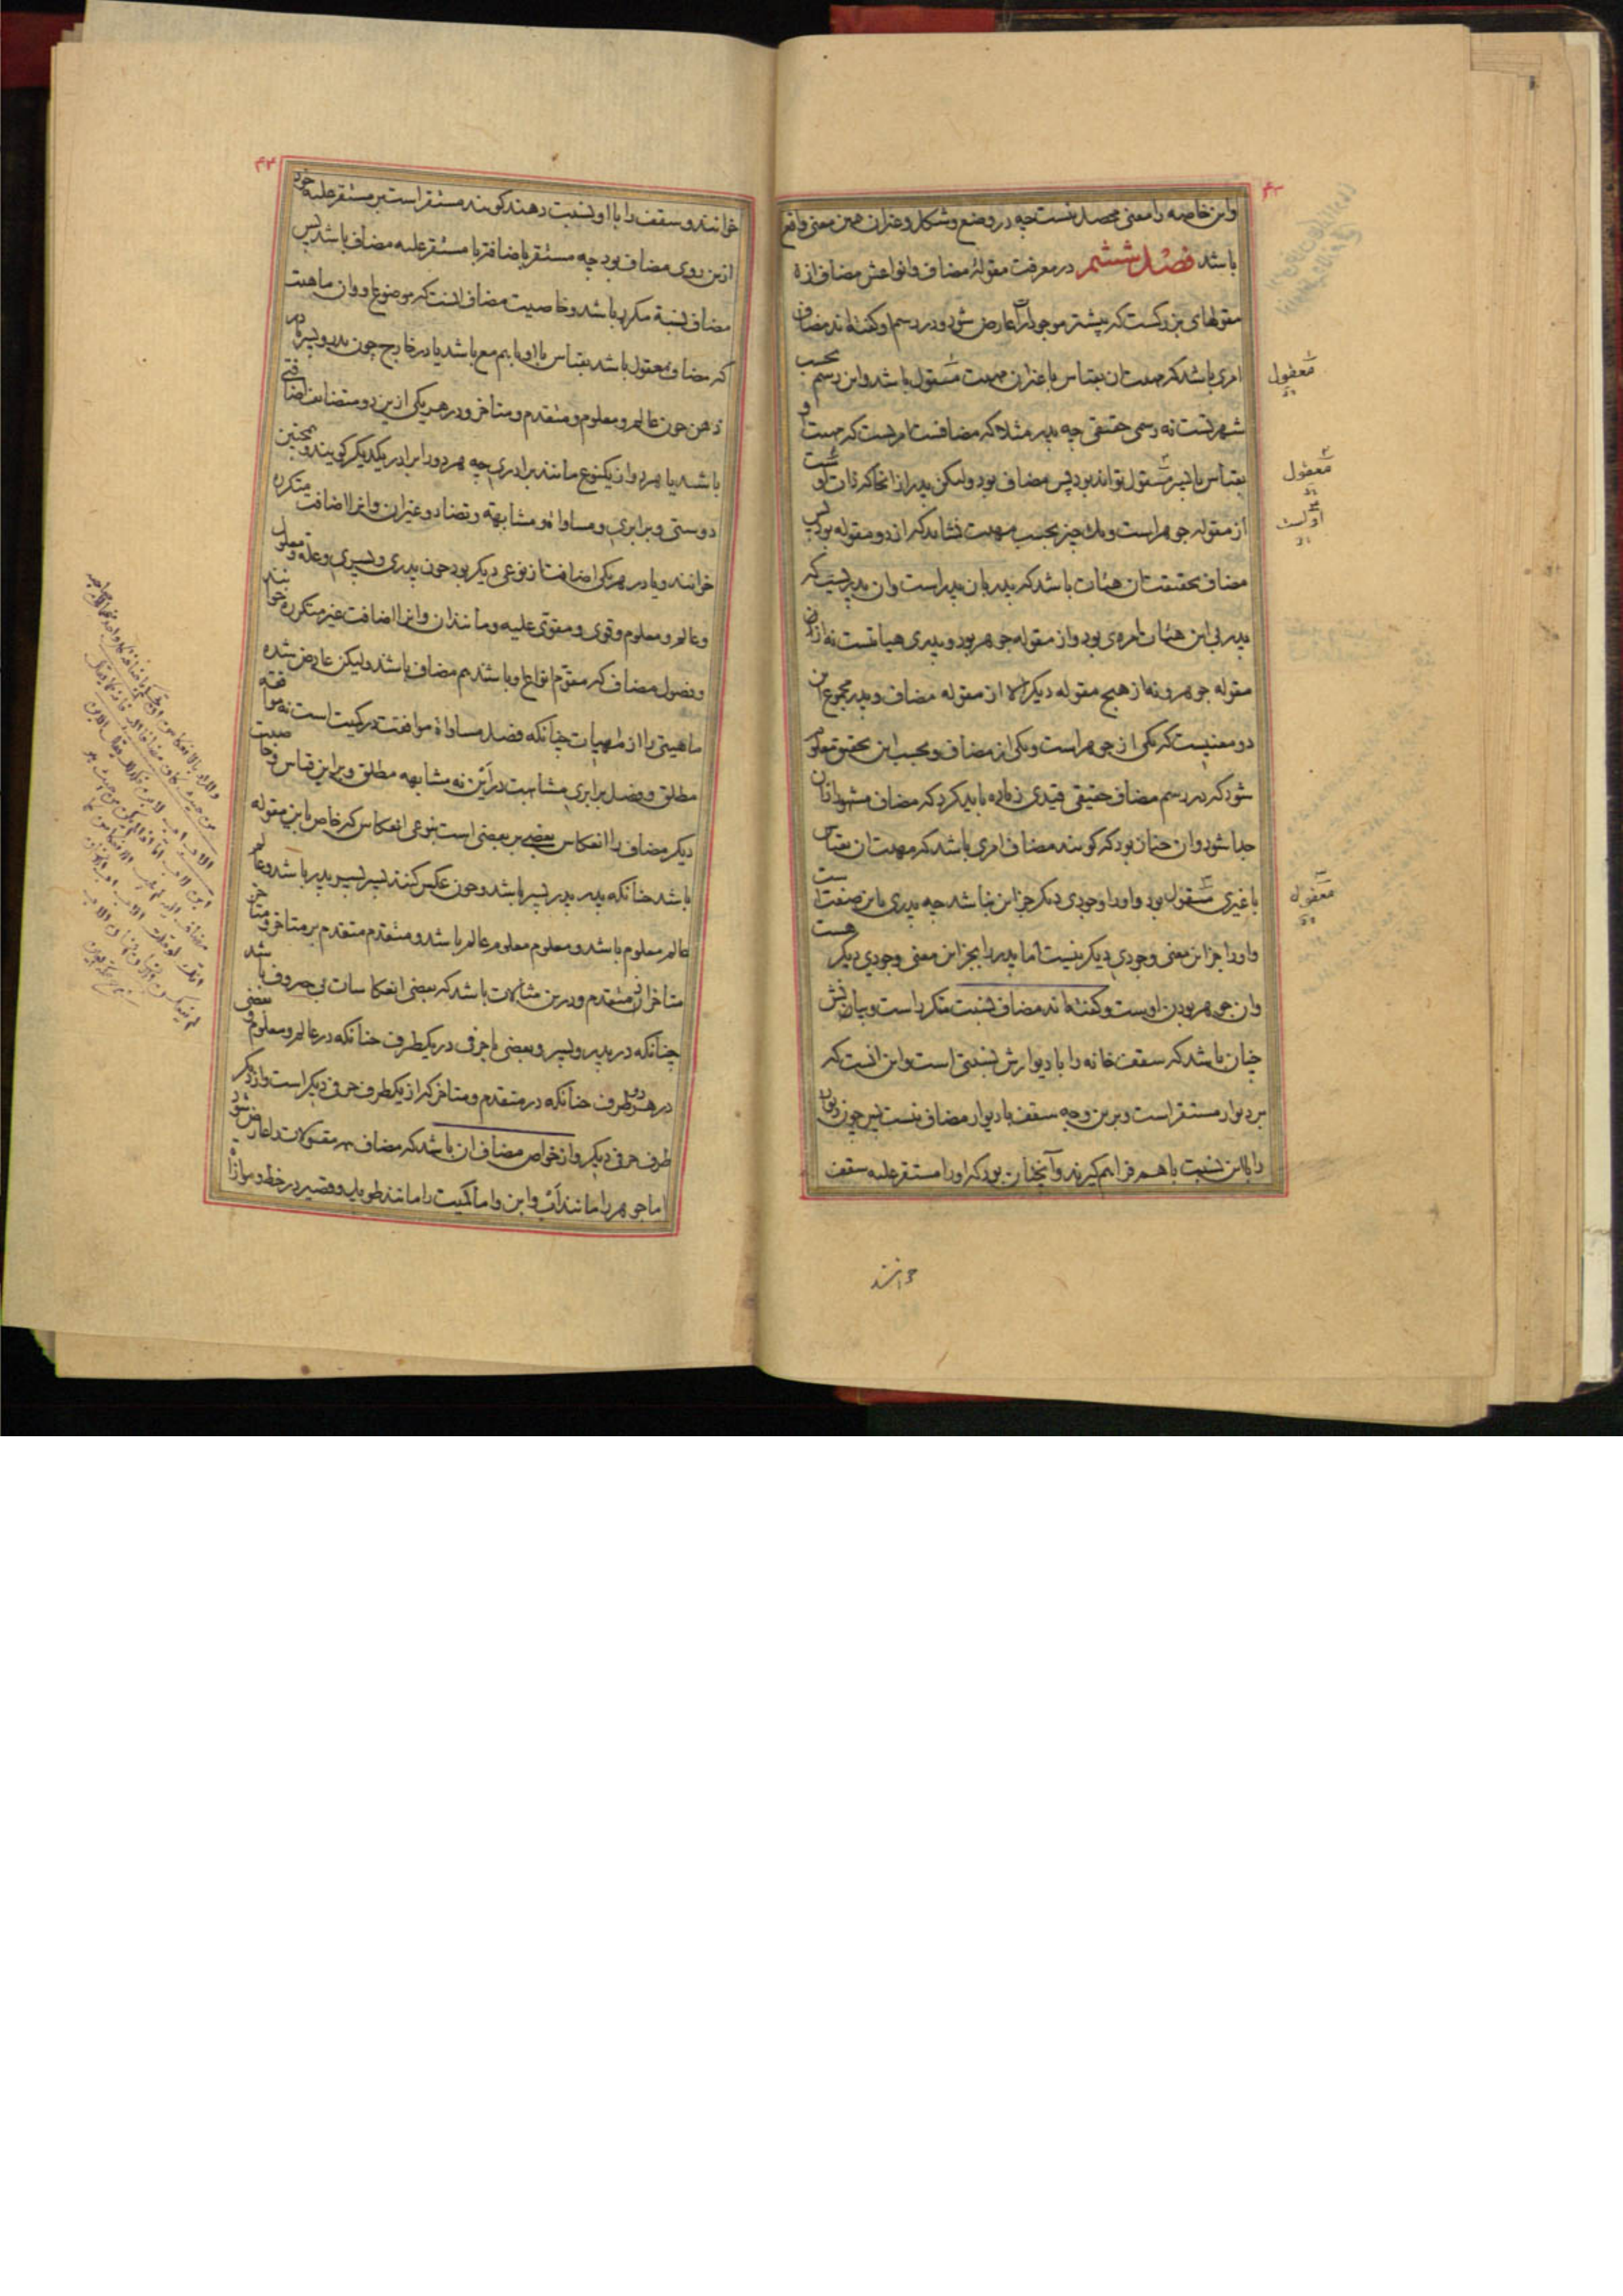 ۴۳
واین خاصه را معنی محصل نیست چه در وضع و شکل و غیر آن همین معنی واقع
باشد فصل ششم در معرفت مقولهٔ مضاف و انواعش مضاف از
مقولهای بزرکست که بیشتر موجودات را عارض شود و در رسم او کفته اند مضاف
امری باشد که مهیت ان بقیاس با غیر ان مهیت مقول باشد و این رسم بحسب
شهرتست نه رسمی حقیقی چه پدر مثلا که مضافست امریست که مهیت او
بقیاس با پسر مقول تواند بود پس مضاف بود ولیکن پدر از انجا که ذات اوست
از مقوله جوهر است و یک چیز بحسب مهیت نشاید که از دو مقوله بود پس
مضاف بحقیقت ان هیئات باشد که پدر بان پدر است وان پدریست که
پدر بی این هیئات امری بود و از مقوله جوهر بود و پدری هیأتست نه از ان
مقوله جوهر و نه از هیچ مقوله دیکر الا از مقوله مضاف و پدر مجموع این
دو معنیست که یکی از جوهر است و یکی از مضاف و بحسب این تحقیق معلوم
شود که در رسم مضاف حقیقی قیدی زیاده باید کرد که مضاف مشهور از ان
جدا شود وان چنان بود که کویند مضاف امری باشد که مهیت ان بقیاس
با غیری مقول بود و او را وجودی دیکر جز این نباشد چه پدری با این صفت است
و او را جز این معنی وجودی دیکر نیست اما پدر را بجز این معنی وجودی دیکر هست
وان جوهر بودن اوست و کفته اند مضاف نسبت متکرر است و بیانش
چنان باشد که سقف خانه را با دیوارش نسبتی است و این انست که
بر دیوار مستقر است و برین وجه سقف با دیوار مضاف نیست پس چون دیوار
را با این نسبت با هم فراهم کیرند و آنچنان بود که او را مستقر علیه سقف
معقول
معقول
اوست
معقول
خوانند
۴۴
خوانند و سقف را با او نسبت دهند کویند مستقر است بر مستقر علیه خود
ازین روی مضاف بود چه مستقر باضافت با مستقر علیه مضاف باشد پس
مضاف نسبة مکرر باشد و خاصیت مضاف انست که موضوع او وان ماهیت
که مضاف معقول باشد بقیاس با او با هم مع باشد یا در خارج چون پدر و پسر یا در
ذهن چون عالم و معلوم و متقدم و متاخر و در هر یکی ازین دو متضایف اضافتی
باشد یا هر دو ان یکنوع مانند برادری چه هر دو را برادر یکدیکر کویند و همچنین
دوستی و برابری و مساواة و مشابهه و تضاد و غیر ان و این را اضافت متکرره
خوانند و یا در هر یکی اضافت از نوعی دیکر بود چون پدری و پسری و علة و معلول
و عالم و معلوم و قوی و مقوی علیه و مانند ان و این را اضافت غیر متکرره خوانند
و فصول مضاف که مقوم انواع او باشند هم مضاف باشند ولیکن عارض شده
ماهیتی را از مهیات چنانکه فصل مساواة موافقت در کمیت است نه موافقة
مطلق و فصل برابری مشابهت در این نه مشابهه مطلق و برین قیاس و خاصیت
دیکر مضاف را انعکاس بعضی بر بعضی است بنوعی انعکاس که خاص باین مقوله
باشد چنانکه پدر پدر پسر باشد و چون عکس کنند پسر پسر پدر باشد و عالم
عالم معلوم باشد و معلوم معلوم عالم باشد و متقدم متقدم بر متاخر و متاخر
متاخر از متقدم و درین مثالات باشد که بعضی انعکاسات بی حروف باشد
چنانکه در پدر و پسر و بعضی با حرف در یکطرف چنانکه در عالم و معلوم و بعضی
در هر دو طرف چنانکه در متقدم و متاخر که از یکطرف حرف دیکر است و از دیکر
طرف حرف دیکر و از خواص مضاف ان باشد که مضاف همه مقولات را عارض شود
اما جوهر را مانند اب و ابن و اما کمیت را مانند طویل و قصیر در خط و موازاة